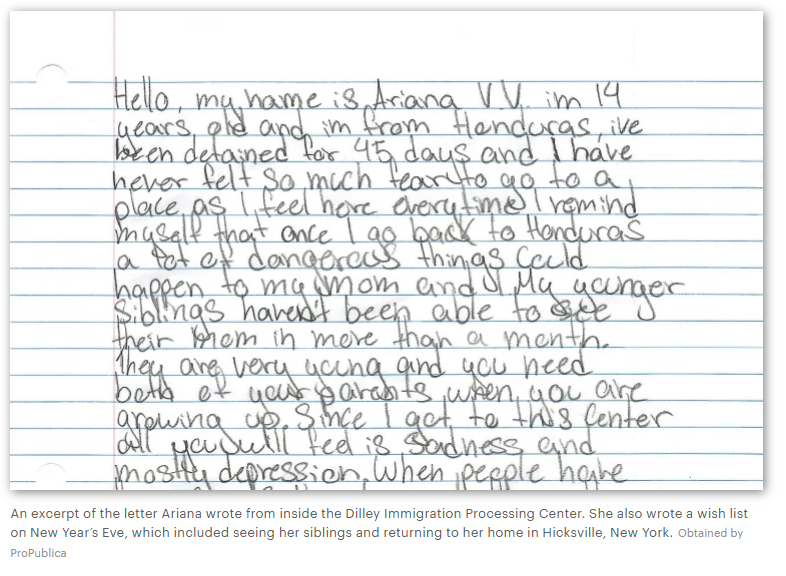 Hello, my name is Ariana V.V. im 14
years old and im from Honduras, ive
been detained for 45 days and I have
never felt so much fear to go to a
place as I feel here everytime I remind
myself that once I go back to Honduras
a lot of dangerous things could
happen to my mom and I. My younger
siblings haven't been able to see
their mom in more than a month.
They are very young and you need
both of your parents when you are
growing up. Since I got to this Center
all you will feel is sadness and
mostly depression. When people have
An excerpt of the letter Ariana wrote from inside the Dilley Immigration Processing Center. She also wrote a wish list
on New Year's Eve, which included seeing her siblings and returning to her home in Hicksville, New York. Obtained by
ProPublica